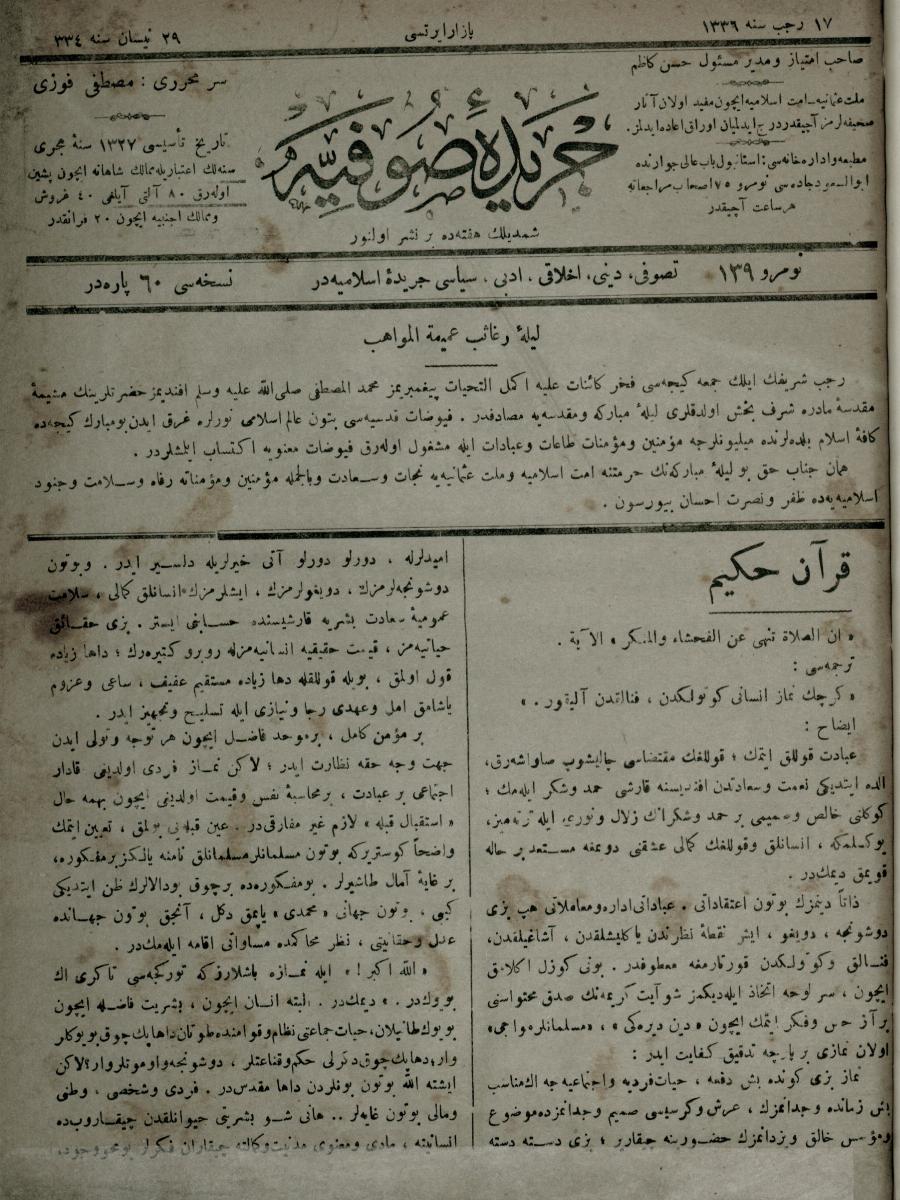 ١٧ رجب سنه ١٣٣٦
بازار ايرتسى
٢٩ نيسان سنه ٣٣٤
صاحب امتياز و مدير مسئول حسن كاظم
ملت عثمانيه‌ــ‌امت اسلاميه ايچون مفيد اولان آثار
صحيفه‌لرمز آچيقدر درج ايدلميان اوراق اعاده ايدلمز.
مطبعه و اداره خانه‌سى: استانبول باب عالى جوارنده
ابوالسعود جاده‌سى نومرو ٧٥ اصحاب مراجعاته
هر ساعت آچيقدر
جريدۀ صوفيه
شمديلك هفته‌ده بر نشر اولنور
سر محررى : مصطفى فوزى
تاريخ تأسيسى ١٣٢٧ سنۀ هجرى
سنه‌لك اعتباريله ممالك شاهانه ايچون پشين
اوله‌رق ٨٠ آلتى آيلغى ٤٠ غروش
وممالك اجنبيه ايچون ٢٠ فرانقدر
نومرو ١٣٩
تصوفى، دينى، اخلاقى، ادبى، سياسى جريدۀ اسلاميه‌در
نسخه‌سى ٦٠ پاره‌در
ليلۀ رغائب عميمة المواهب
رجب شريفك ايلك جمعه كيجه‌سى فخر كائنات عليه اكمل التحيات پيغمبريمز محمد المصطفى صلى الله عليه وسلم افنديمز حضرتلرينك مشيمۀ
مقدسۀ مادره شرف بخش اولدقلرى ليلۀ مباركه ومقدسه‌يه مصادفدر . فيوضات قدسيه‌سى بتون عالم اسلامى نورلره غرق ايدن بو مبارك كيجه‌ده
كافۀ اسلام بلده‌لرنده ميليونلرجه مؤمنين ومؤمنات طاعات وعبادات ايله مشغول اوله‌رق فيوضات معنويه اكتساب ايلمشلردر .
همان جناب حق بو ليلۀ مباركه‌نك حرمتنه امت اسلاميه وملت عثمانيه‌يه نجات وسعادت وبالجمله مؤمنين ومؤمناته رفاه وسلامت وجنود
اسلاميه‌يه‌ده ظفر ونصرت احسان بيورسون .
قرآن حكيم
« ان الصلاة تنهى عن الفحشاء والمنكر » الآية .
ترجمه‌سى :
« كرچك نماز انسانى كوتولكدن ، فنالقدن آليقور . »
ايضاح :
عبادت قوللق ايتمك ؛ قوللغك مقتضاسى چاليشوب صاواشه‌رق،
الده ايتديكى نعمت وسعادتدن افنديسنه قارشى حمد وشكر ايله‌مك ؛
كوكلنى خالص وصميمى بر حمد وشكرانك زلال ونورى ايله تميزله‌مز،
يوكسلمكه ، انسانلق وقوللغك كمالى عشقنى دويمغه مستعد بر حاله
قويمق ديمكدر .
ذاتاً دينمزك بوتون اعتقاداتى . عباداتى اداره ومعاملاتى هپ بزى
دوشونجه ، دويغو ، ايش نقطۀ نظرندن ياكليشلقدن ، آشاغيلقدن،
فنالق وكوتولكدن قورتارمغه معطوفدر . بونى كوزل آكلامق
ايچون ، سر لوحه اتخاذ ايله‌ديكمز شو آيت كريمه‌نك صدق محتواسنى
بر آز حس وفكر ايتمك ايچون « دين ديره‌كى » ، «مسلمانلر معراجى»
اولان نمازى بر پارچه تدقيق كفايت ايدر :
نماز بزى كونده بش دفعه ، حيات فرديه واجتماعيه‌جه اك مناسب
بش زمانده وجدانمزك ، عرش وكرسيسى صميم وجدانمزده موضوع
ومؤسس خالق ويزدانمزك حضورينه چيقارير ؛ بزى دسته دسته
اميدلرله ، دورلو دورلو آتى خبرلريله دلسير ايدر . وبوتون
دوشونجه‌لرمزك ، دويغولرمزك ، ايشلرمزك انسانلق كمالى ، سلامت
عموميۀ سعادت بشريه قارشيسنده حسابنى ايستر . بزى حقائق
حياتيه‌مز ، قيمت حقيقيه انسانيه‌مزله روبرو كتيره‌رك ؛ داها زياده
قول اولمق ، بويله قوللقله دها زياده مستقيم عفيف ، ساعى وعزوم
ياشامق امل وعهدى رجا ونيازى ايله تسليح وتجهيز ايدر .
بر مؤمن كامل ، بر موحد فاضل ايچون هر توجه وتولى ايدن
جهت وجه حقه نظارت ايدر ؛ لاكن نماز فردى اولديغى قادار
اجتماعى بر عبادت ، بر محاسبۀ نفس وقيمت اولديغى ايچون بهمه حال
« استقبال قبله » لازم غير مفارقى‌در . عين قبله‌يى بولمق ، تعيين ايتمك
واضحاً كوستريركه بوتون مسلمانلر مسلمانلق نامنه يالكز بر مفكوره،
بر غايۀ آمال طاشيرلر . بو مفكوره‌ده بر چوق بودالالرك ظن ايتديكى
كبى ، بوتون جهانى « محمدى » ياپمق دكل ، آنجق بوتون جهانده
عدل وحقانيتى ، نظر محاكمده مساواتى اقامه ايله‌مك‌در .
« الله اكبر ! » ايله نمازه باشلارزكه توركجه‌سى تاكرى اك
بويوك‌در . » ديمك‌در . البته انسان ايچون ، بشريت فاضله ايچون
بويوك طانيلان، حيات جماعتى نظام وقوامنده طوتان داها پك چوق بويوكلر
واردر داها پك چوق دكرلى حكم وقناعتلر ، دوشونجه واوموتلر وار؟ لاكن
ايشته الله بوتون بونلردن داها مقدس‌در . فردى وشخصى ، وطنى
ومالى بوتون غايه‌لر .. هانى شو بشريتى حيوانلقدن چيقاروب‌ده
انسانيته ، مادى ومعنوى مدنيت وكمالته چيقاران فكرلر